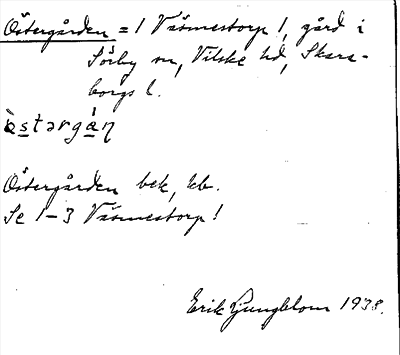 Östergården = 1 Väsmestorp 1, gård i
Sörby sn, Vilske hd, Skara-
borgs l.
östərgán
Östergården bek, kb.
Se 1-3 Väsmestorp!
Erik Ljungblom 1938.